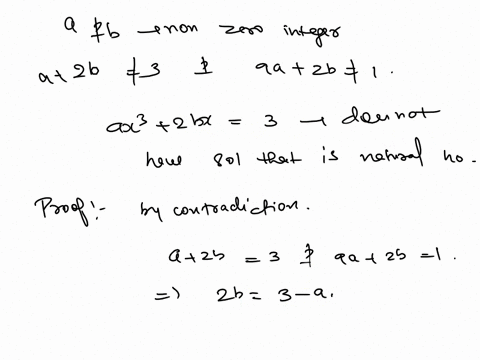 a & b → non zero integer
a + 2b ≠ 3 & 9a + 2b ≠ 1.
ax³ + 2bx = 3 → does not
have sol that is natural no.
Proof:- by contradiction.
a + 2b = 3 & 9a + 2b = 1.
=> 2b = 3 - a.